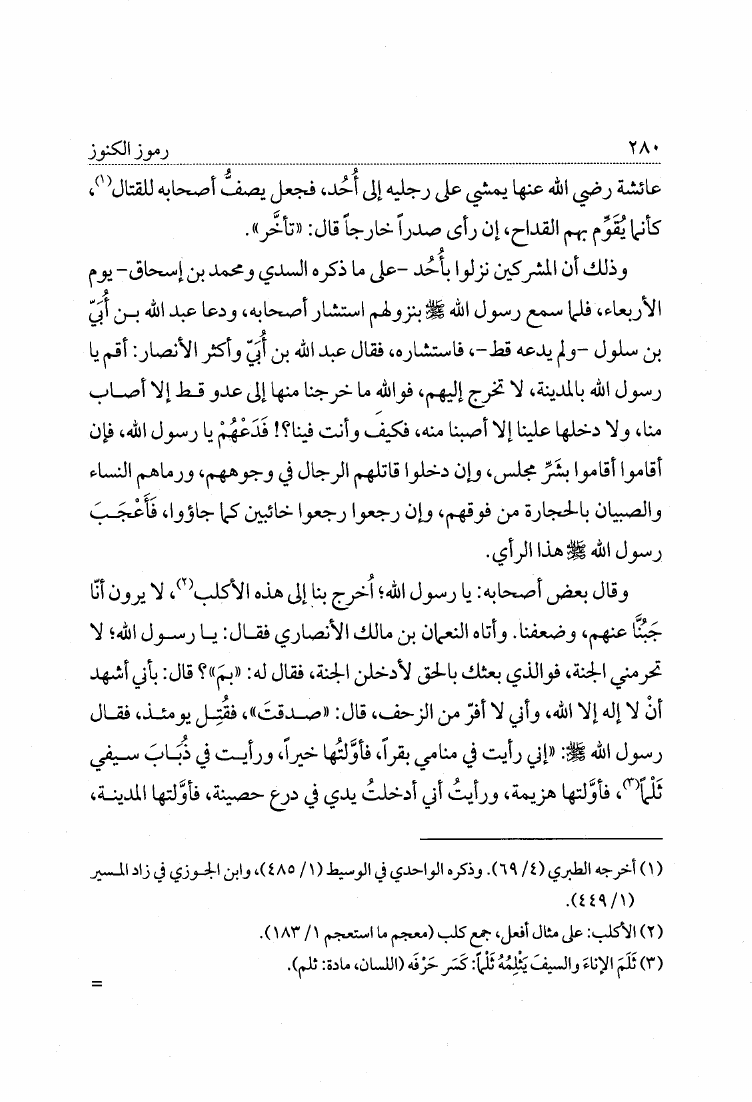 ٢٨٠
رموز الكنوز
عائشة رضي الله عنها يمشي على رجليه إلى أُحُد، فجعل يصفُّ أصحابه للقتال(١)،
كأنما يُقَوِّم بهم القداح، إن رأى صدراً خارجاً قال: «تأخَّر».
وذلك أن المشركين نزلوا بأُحُد -على ما ذكره السدي ومحمد بن إسحاق- يوم
الأربعاء، فلما سمع رسول الله ﷺ بنزولهم استشار أصحابه، ودعا عبد الله بـن أُبَيّ
بن سلول -ولم يدعه قط-، فاستشاره، فقال عبد الله بن أُبَيّ وأكثر الأنصار: أقم يا
رسول الله بالمدينة، لا تخرج إليهم، فوالله ما خرجنا منها إلى عدو قـط إلا أصـاب
منا، ولا دخلها علينا إلا أصبنا منه، فكيف وأنت فينا؟! فَدَعْهُمْ يا رسول الله، فإن
أقاموا أقاموا بشَرِّ مجلس، وإن دخلوا قاتلهم الرجال في وجوههم، ورماهم النساء
والصبيان بالحجارة من فوقهم، وإن رجعوا رجعوا خائبين كما جاؤوا، فَأَعْجَـبَ
رسول الله ﷺ هذا الرأي.
وقال بعض أصحابه: يا رسول الله؛ اُخرج بنا إلى هذه الأكلب(٢)، لا يرون أنّا
جَبُنَّا عنهم، وضعفنا. وأتاه النعمان بن مالك الأنصاري فقـال: يـا رسـول الله؛ لا
تحرمني الجنة، فوالذي بعثك بالحق لأدخلن الجنة، فقال له: «بمَ»؟ قال: بأني أشهد
أنْ لا إله إلا الله، وأني لا أفرّ من الزحف، قال: «صـدقتَ»، فقُتِـل يومئـذ، فقـال
رسول الله ﷺ: «إني رأيت في منامي بقراً، فأوَّلتُها خيراً، ورأيـت في ذُبَـابَ سـيفي
ثَلْماً(٣)، فأوَّلتها هزيمة، ورأيتُ أني أدخلتُ يدي في درع حصينة، فأوَّلتها المدينـة،
(١) أخرجه الطبري (٤/ ٦٩). وذكره الواحدي في الوسيط (١/ ٤٨٥)، وابن الجـوزي في زاد المـسير
(١/ ٤٤٩).
(٢) الأكلب: على مثال أفعل، جمع كلب (معجم ما استعجم ١/ ١٨٣).
(٣) ثَلَمَ الإناءَ والسيفَ يَثْلِمُهُ ثَلْماً: كَسَر حَرْفَه (اللسان، مادة: ثلم).
=